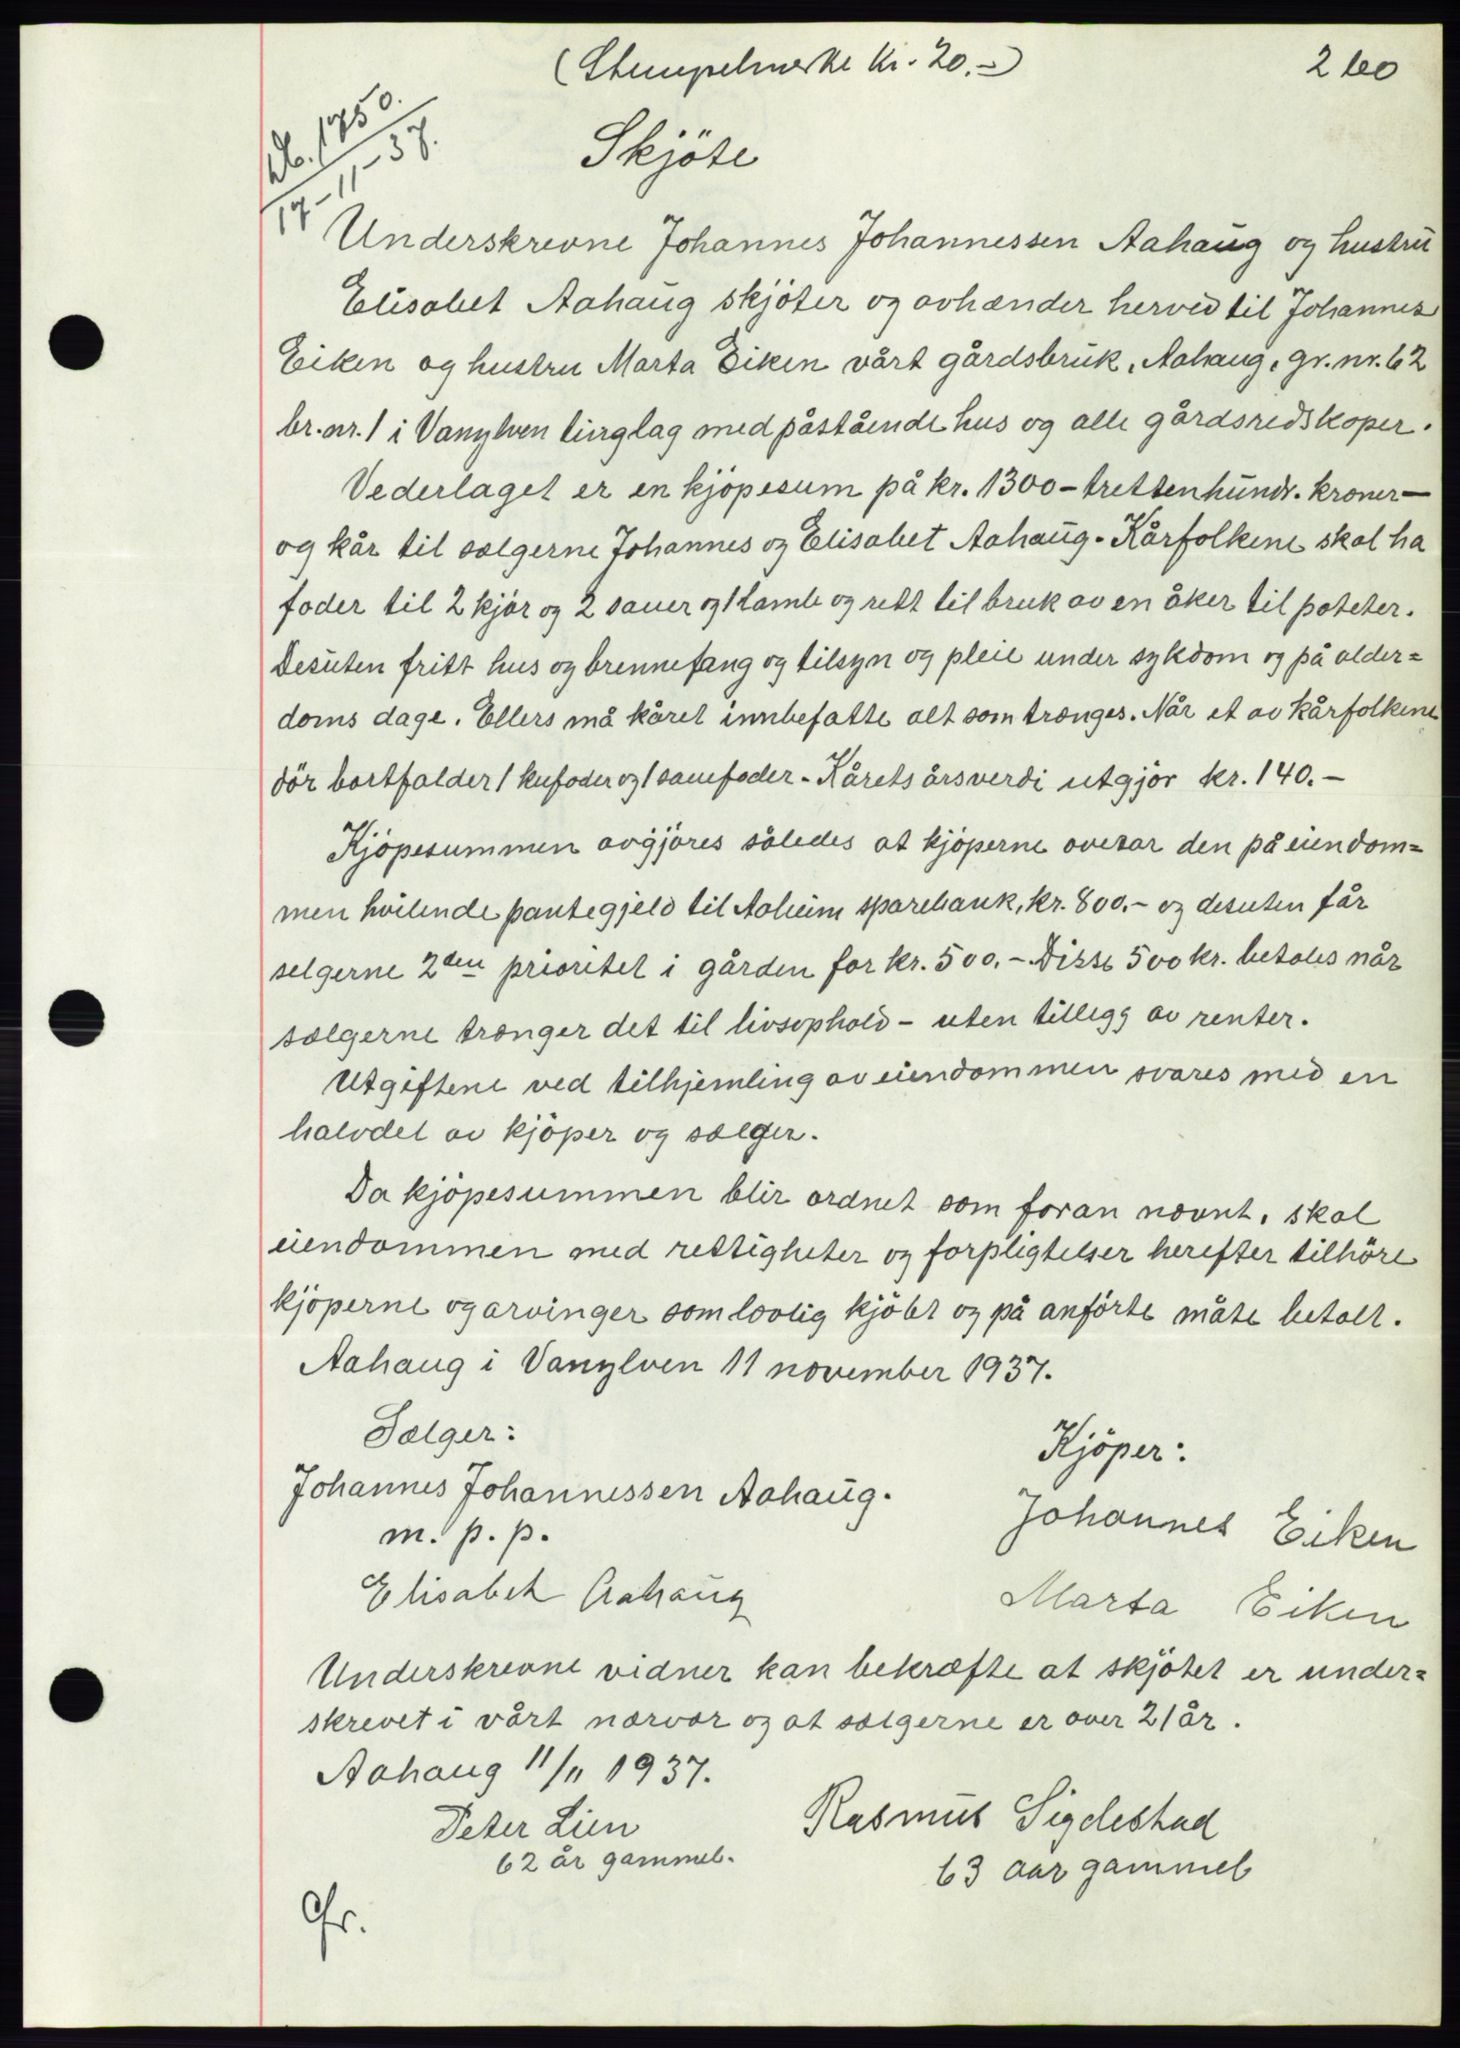 (Stempelmerke kr. 20.-)
260
Db. 1750.
17-11-37.
Skjöte
Underskrevne Johannes Johannessen Aahaug og hustru
Elisabet Aahaug skjöter og avhænder herved til Johannes
Eiken og hustru Marta Eiken vårt gårdsbruk, Aahaug, gr. nr. 62
br. nr. 1 i Vanylven tinglag med påstående hus og alle gårdsredskaper.
Vederlaget er en kjöpesum på kr. 1300 - trettenhundr. kroner -
og kår til sælgerne Johannes og Elisabet Aahaug. Kårfolkene skal ha
foder til 2 kjör og 2 sauer og 1 lamb og rett til bruk av en åker til poteter.
Desuten fritt hus og brennefang og tilsyn og pleie under sykdom og på alder=
doms dage. Ellers må kåret innbefatte alt som trænges. Når et av kårfolkene
dör bortfalder 1 kufoder og 1 sauefoder. Kårets årsverdi utgjör kr. 140.-
Kjöpesummen avgjöres således at kjöperne overtar den på eiendom=
men hvilende pantegjeld til Aaheim sparebank, kr. 800.- og desuten får
selgerne 2den prioritet i gården for kr. 500.- Disse 500 kr. betales når
sælgerne trænger det til livsophold - uten tillegg av renter.
Utgiftene ved tilhjemling av eiendommen svares med en
halvdel av kjöper og sælger.
Da kjöpesummen blir ordnet som foran nævnt, skal
eiendommen med rettigheter og forpligtelser herefter tilhöre
kjöperne og arvinger som lovlig kjöbt og på anförte måte betalt.
Aahaug i Vanylven 11 november 1937.
Sælger:
Kjöper:
Johannes Johannessen Aahaug.
m. p. p.
Johannes Eiken
Elisabet Aahaug
Marta Eiken
Underskrevne vidner kan bekræfte at skjötet er under=
skrevet i vårt nærvær og at sælgerne er over 21 år.
Aahaug 11/11 1937.
Peter Lien
62 år gammel.
Rasmus Sigdestad
63 aar gammel